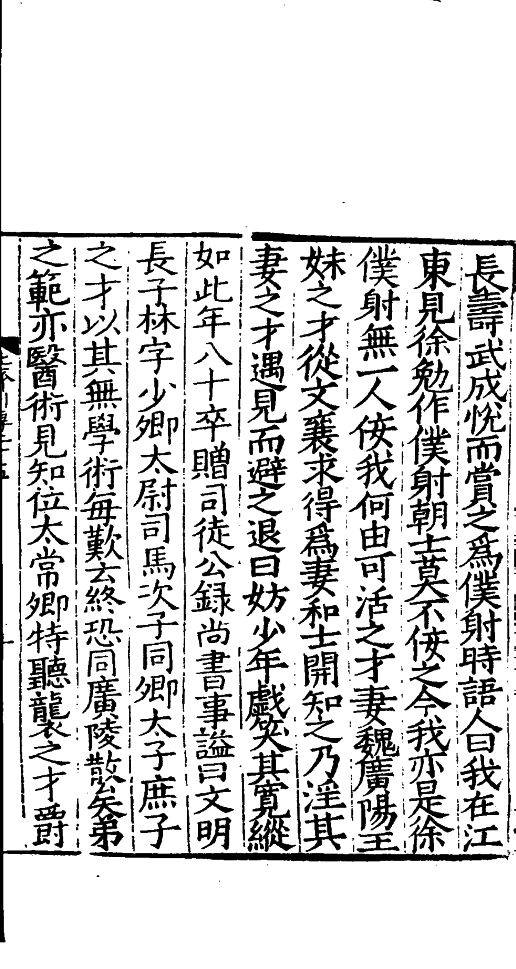 長壽武成悅而賞之爲僕射時語人曰我在江
東見徐勉作僕射朝士莫不佞之今我亦是徐
僕射無一人佞我何由可活之才妻魏廣陽王
妹之才從文襄求得爲妻和士開知之乃淫其
妻之才遇見而避之退曰妨少年戱笑其寬縱
如此年八十卒贈司徒公録尚書事謚曰文明
長子林字少卿太尉司馬次子同卿太子庶子
之才以其無學術每歎云終恐同廣陵散矣弟
之範亦醫術見知位太常卿特聽襲之才爵